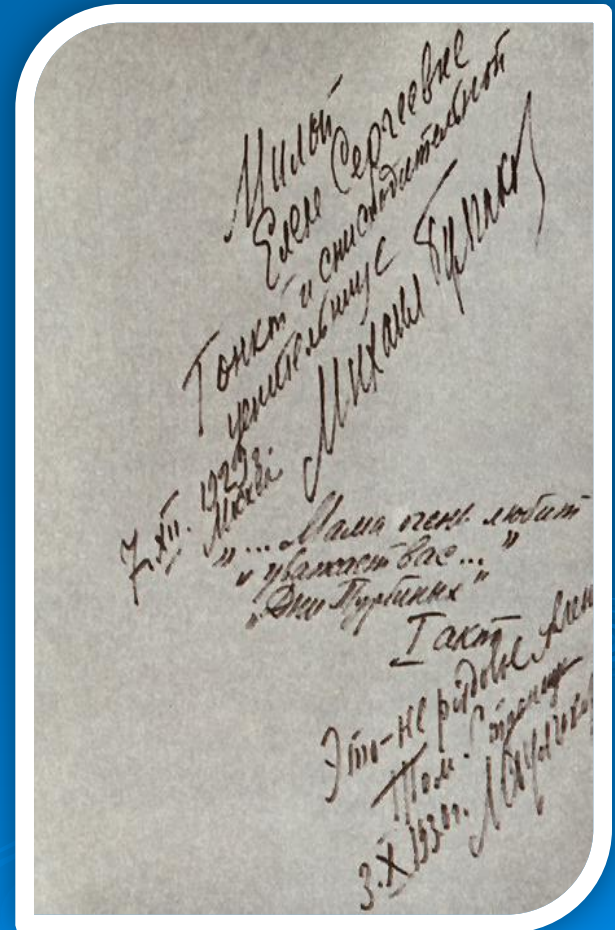 Милой
Елене Сергеевне
Тонкой и снисходительной
ценительнице
Михаил Булгаков
7.XII. 1929 г.
Москва.
"... Мама очень любит
и уважает вас..."
"Дни Турбиных"
I акт
Это-не рядовые
3.X 1930г. М. Булгаков